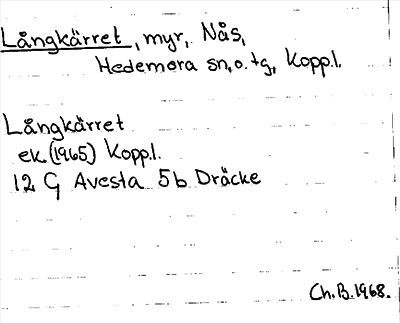 Långkärret, myr, Nås,
Hedemora sn, o. tg, Kopp.l.
Långkärret
ek. (1965) Kopp.l.
12 G Avesta 5b Dräcke
Ch.B.1968.